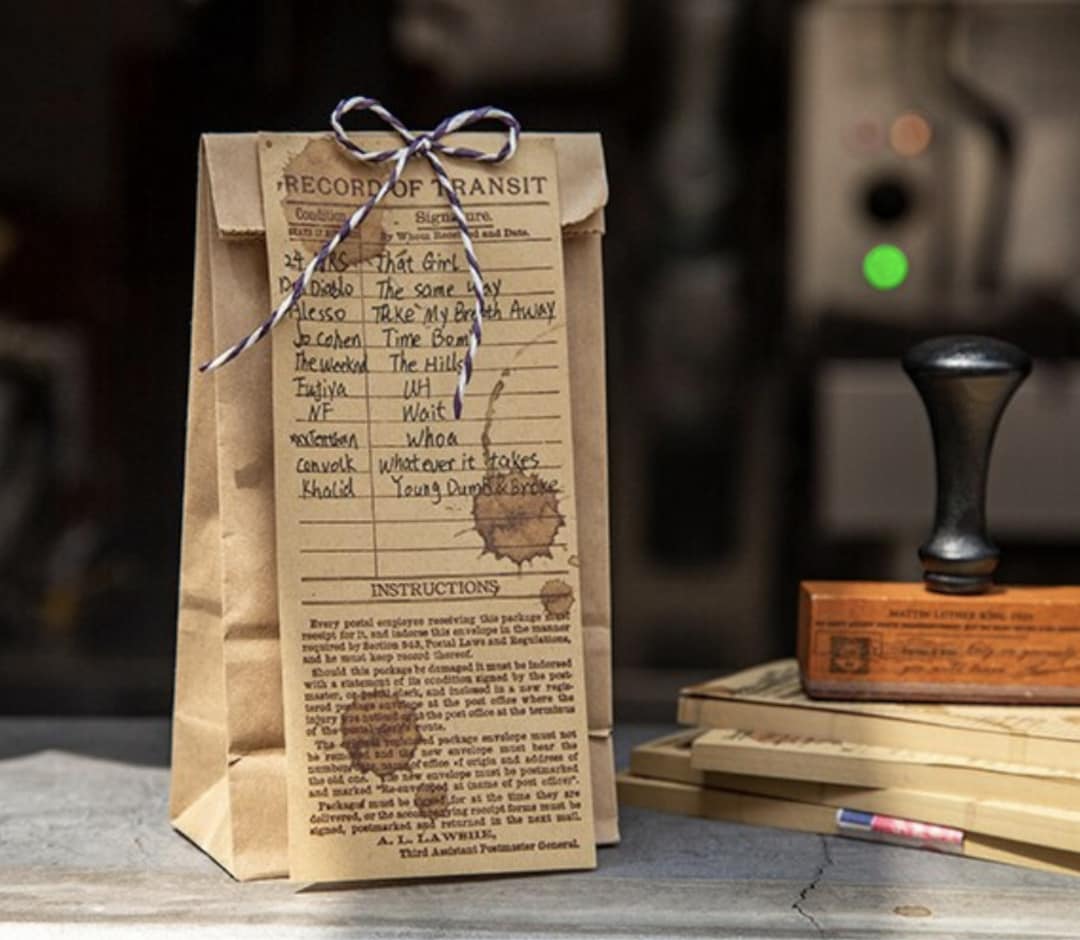 RECORD OF TRANSIT
Condition Signature.
By Whom Received and Date.
24 HRS That Girl
Don Diablo The same way
Alesso Take My Breath Away
Jo Cohen Time Bomb
The Weeknd The Hills
Fujiya UH
NF Wait
whoa
convolk whatever it takes
Khalid Young Dumb & Broke
INSTRUCTIONS
Every postal employee receiving this package must
receipt for it, and indorse this envelope in the manner
required by Section 943, Postal Laws and Regulations,
and he must keep record thereof.
Should this package be damaged it must be indorsed
with a statement of its condition signed by the post-
master, or postal clerk, and inclosed in a new regis-
tered package envelope at the post office where the
injury was noticed or at the post office at the terminus
of the postal clerk's route.
The package envelope must not
be removed and the new envelope must bear the
number, name of office of origin and address of
the old one. The new envelope must be postmarked
and marked "Re-enveloped at (name of post office)".
Packages must be signed for at the time they are
delivered, or the accompanying receipt forms must be
signed, postmarked and returned in the next mail.
A. L. LAWSHE,
Third Assistant Postmaster General.